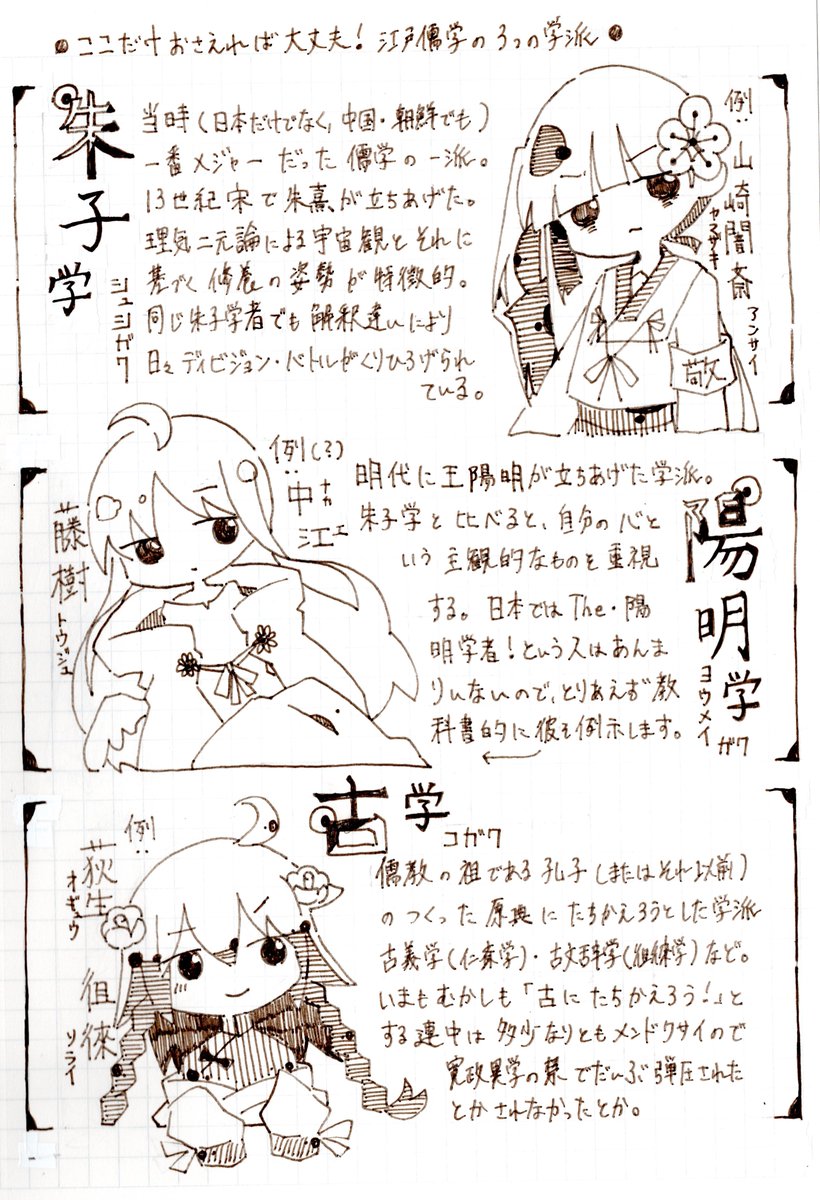 ここだけおさえれば大丈夫！江戸儒学の3つの学派
朱子学
シュシガク
当時（日本だけでなく、中国・朝鮮でも）
一番メジャーだった儒学の一派。
13世紀宋で朱熹が立ちあげた。
理気二元論による宇宙観とそれに
基づく修養の姿勢が特徴的。
同じ朱子学者でも解釈違いにより
日々ディビジョン・バトルがくりひろげられ
ている。
例：山崎闇斎
ヤマザキ
アンサイ
敬
陽明学
ヨウメイ
ガク
明代に王陽明が立ちあげた学派。
朱子学と比べると、自分の心と
いう主観的なものを重視
する。日本ではThe・陽
明学者！という人はあんま
りいないので、とりあえず教
科書的に彼を例示します。
例(?)：中江
ナカエ
藤樹
トウジュ
古学
コガク
儒教の祖である孔子（またはそれ以前）
のつくった原典にたちかえろうとした学派
古義学（仁斎学）・古文辞学（徂徠学）など。
いまもむかしも「古にたちかえろう！」と
する連中は多少なりともメンドクサイので
寛政異学の禁でだいぶ弾圧された
とかされなかったとか。
例：
荻生
オギュウ
徂徠
ソライ